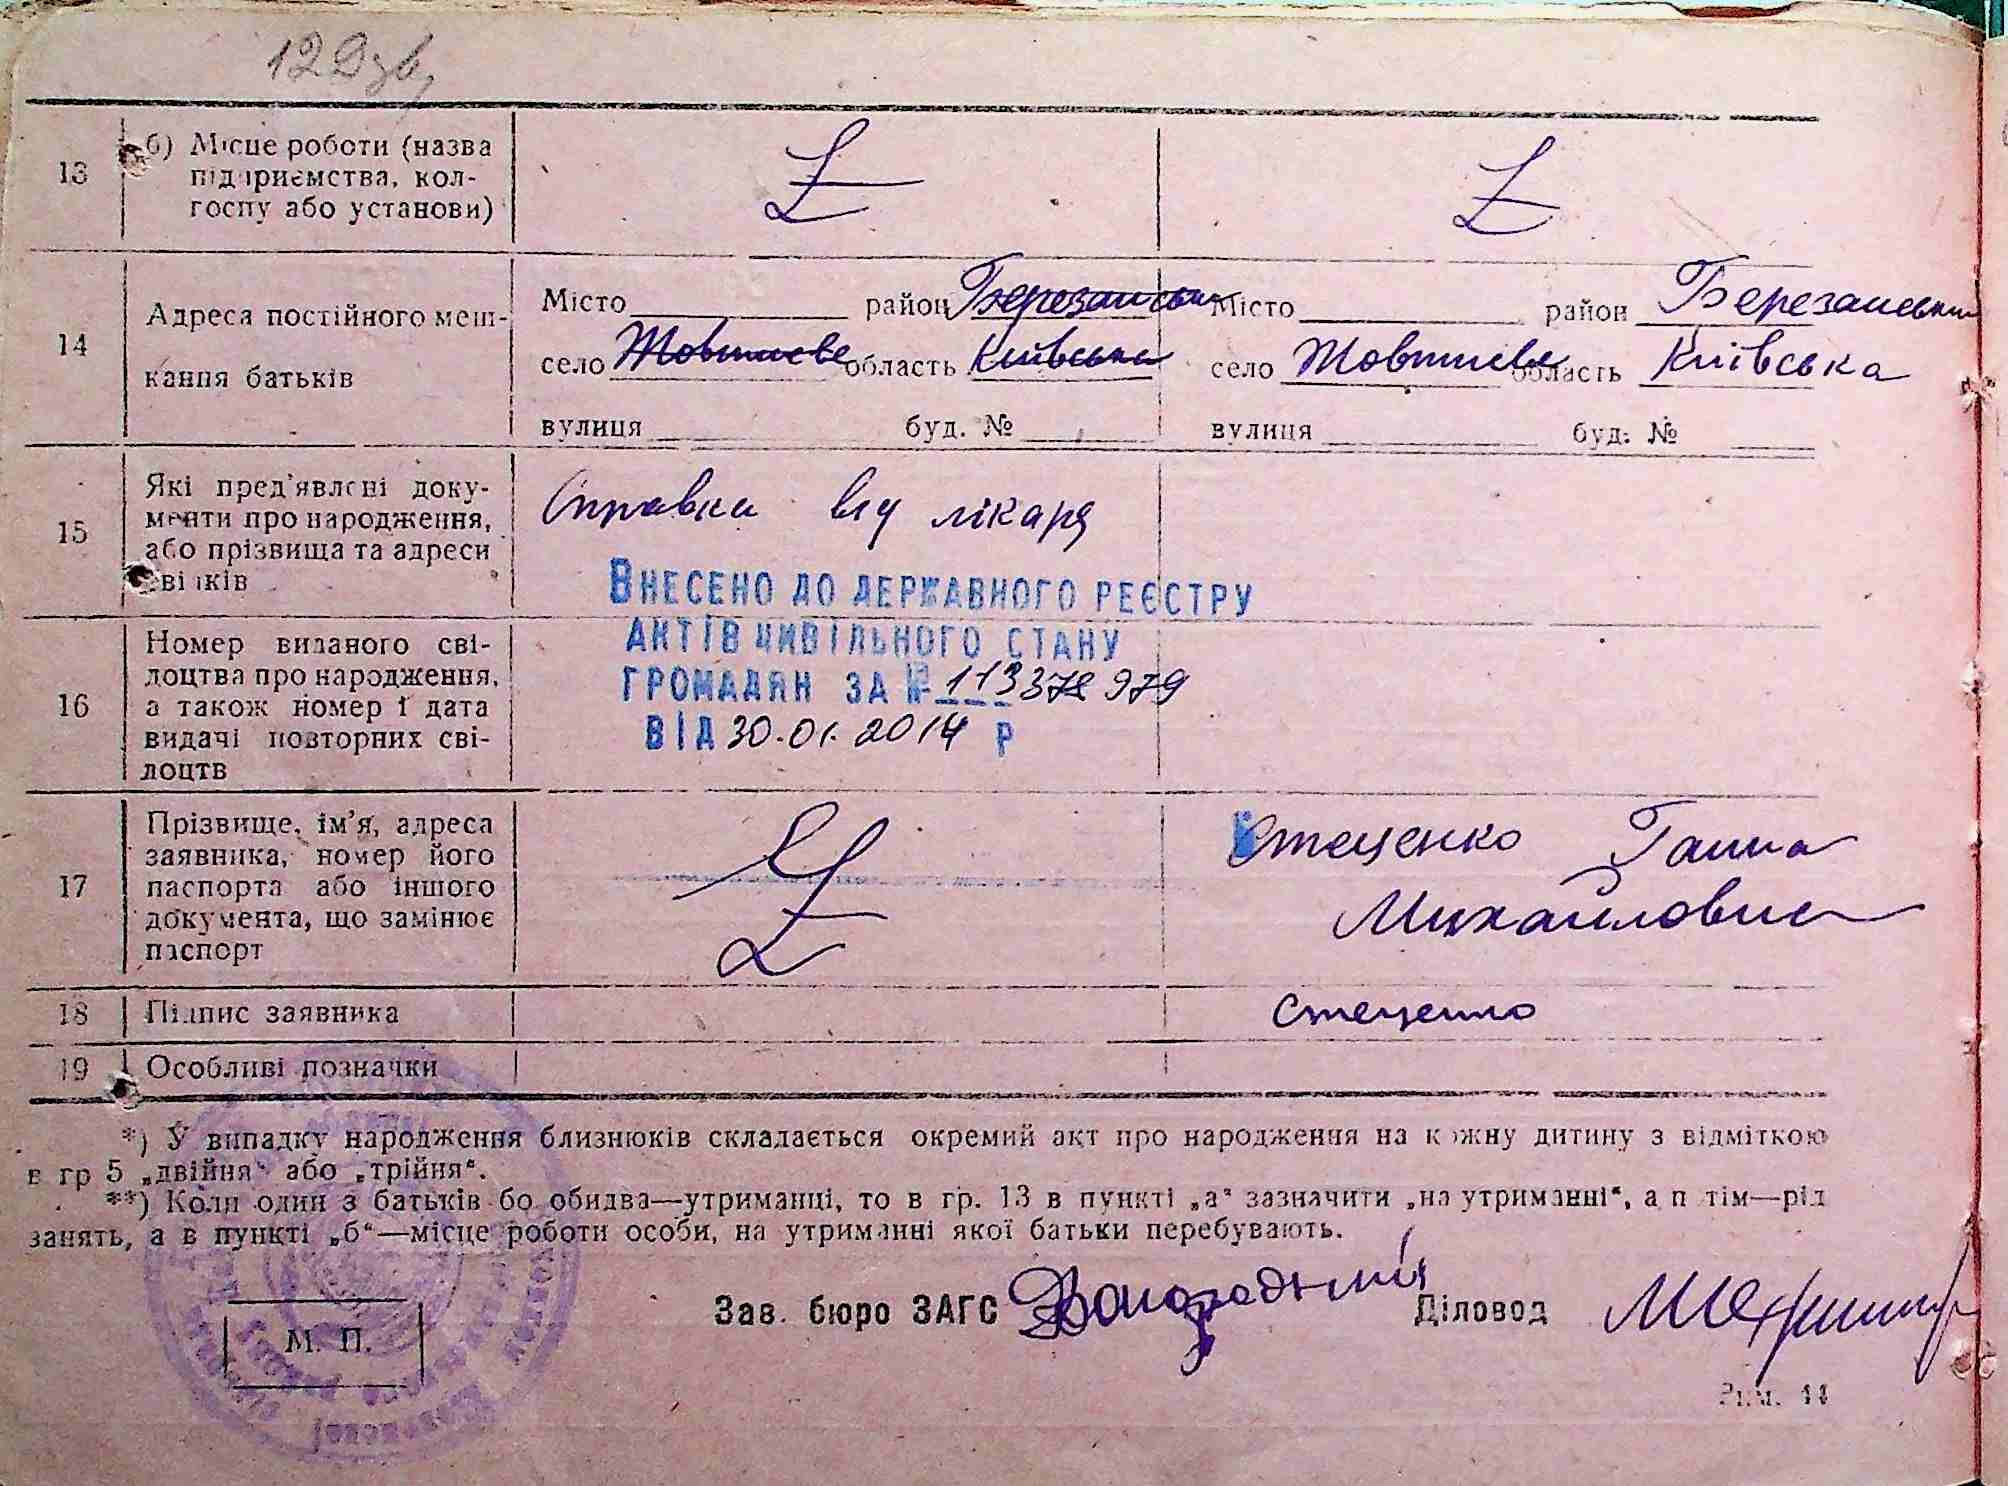 13 б) Місце роботи (назва
підприємства, кол-
госпу або установи)
14 Адреса постійного меш-
кання батьків
Місто район Березанський Місто район Березанський
село Жовтнева область Київська село Жовтнева область Київська
вулиця буд. № вулиця буд. №
15 Які пред'явлені доку-
менти про народження,
або прізвища та адреси
свідків
Справка від лікаря
ВНЕСЕНО ДО ДЕРЖАВНОГО РЕЄСТРУ
АКТІВ ЦИВІЛЬНОГО СТАНУ
ГРОМАДЯН ЗА №
ВІД 30.01.2014 р
16 Номер виданого сві-
доцтва про народження,
а також номер і дата
видачі повторних сві-
доцтв
17 Прізвище, ім'я, адреса
заявника, номер його
паспорта або іншого
документа, що замінює
паспорт
Стеценко Ганна
Михайловна
18 Підпис заявника Стеценко
19 Особливі позначки
*) У випадку народження близнюків складається окремий акт про народження на кожну дитину з відміткою
в гр 5 „двійня“ або „трійня“.
**) Коли один з батьків бо обидва—утриманці, то в гр. 13 в пункті „а“ зазначити „на утриманні“, а п тім—рід
занять, а в пункті „б“—місце роботи особи, на утриманні якої батьки перебувають.
Зав. бюро ЗАГС Діловод
М. П.